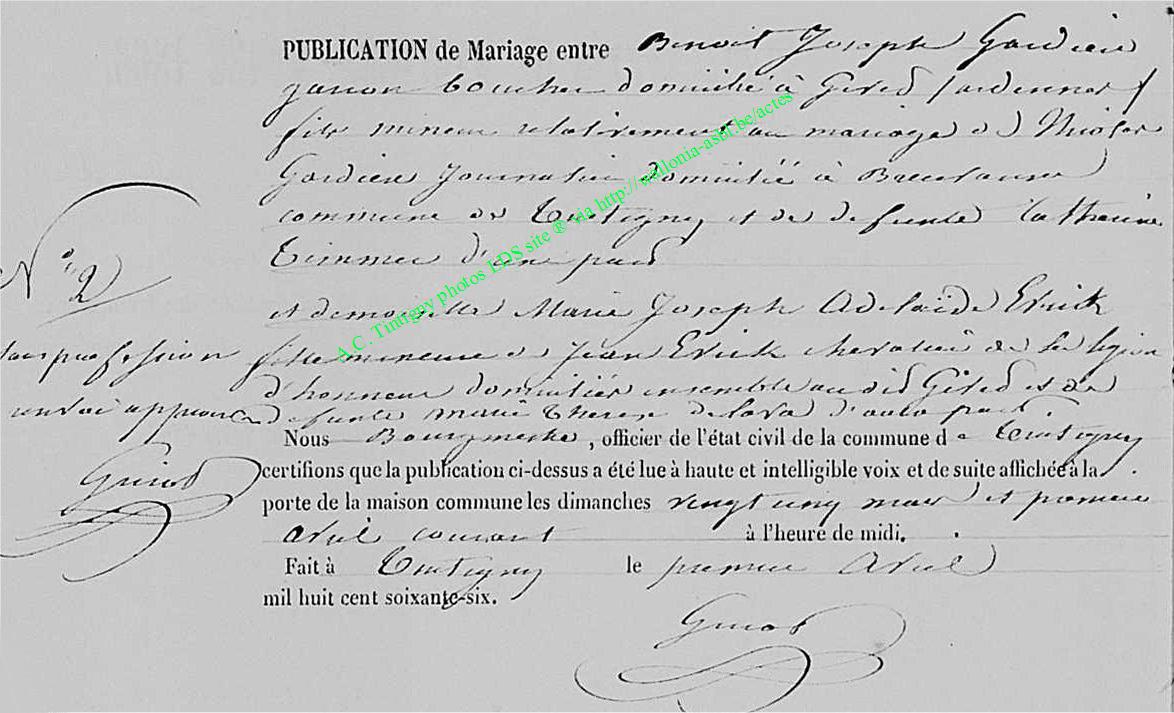 PUBLICATION de Mariage entre Benoit Joseph Gardien
garçon boucher domicilié à Gived (ardennes)
fils mineur relativement au mariage de Nicolas
Gardien Journalier domicilié à
commune de Tintigny et de defunte Catherine
d'une part
et demoiselle Marie Joseph Adelaïde Erick
fille mineure de Jean Erick chevalier de la légion
d'honneur domiciliés ensemble au dit Gived et de
defunte Marie Therese d'autre part.
N° 2
sans profession
renvoi approuvé
Nous Bourgmestre, officier de l'état civil de la commune de Tintigny
certifions que la publication ci-dessus a été lue à haute et intelligible voix et de suite affichée à la
porte de la maison commune les dimanches vingt cinq mars et premier
avril courant à l'heure de midi.
Fait à Tintigny le premier Avril
mil huit cent soixante-six.
A.C. Tintigny photos LDS site ® via http://wallonia-asbl.be/actes